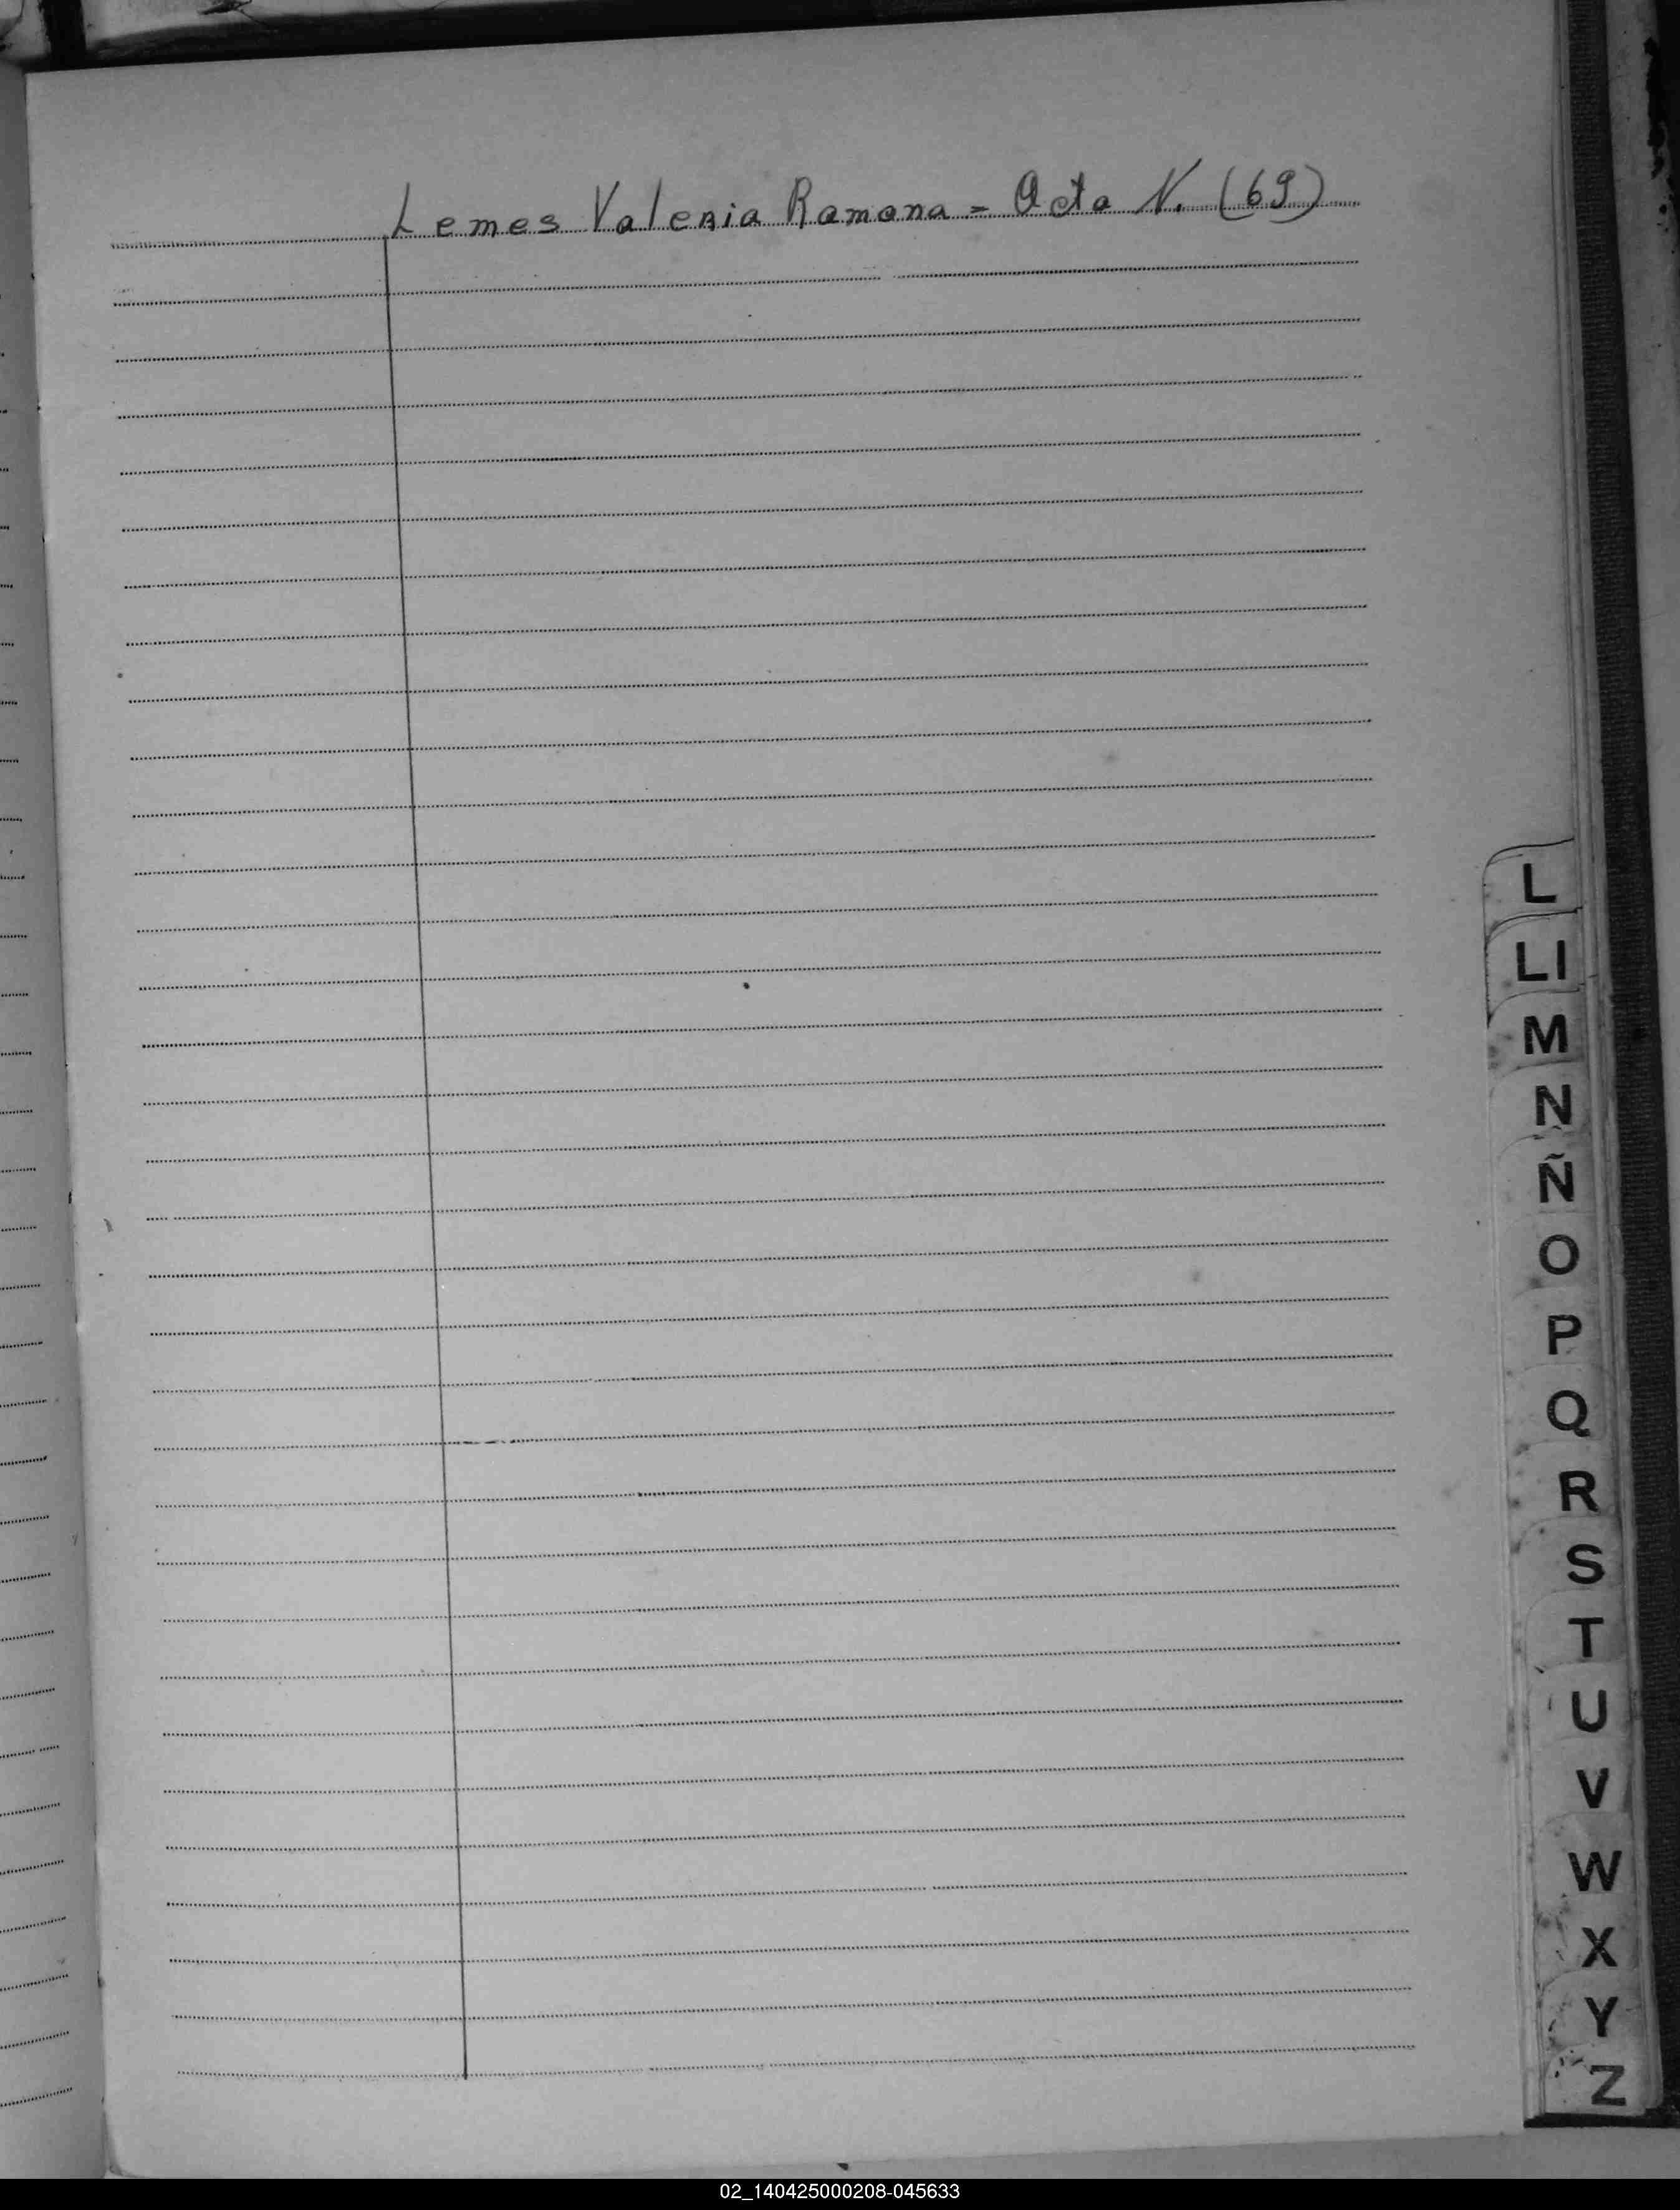 Lemes Valeria Ramona = Acta N. (69)
L
Ll
M
N
Ñ
O
P
Q
R
S
T
U
V
W
X
Y
Z
02_140425000208-045633